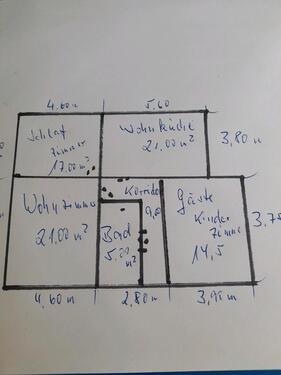 4.60 m
5.60
Schlaf
zimmer
17.00 m²
Wohnküche
21.00 m²
3,80 m
Wohnzimmer
21.00 m²
Korridor
Bad
5.00
m²
Gäste
Kinder
zimmer
14,5
3.75
4.60 m
2,80 m
3,95 m